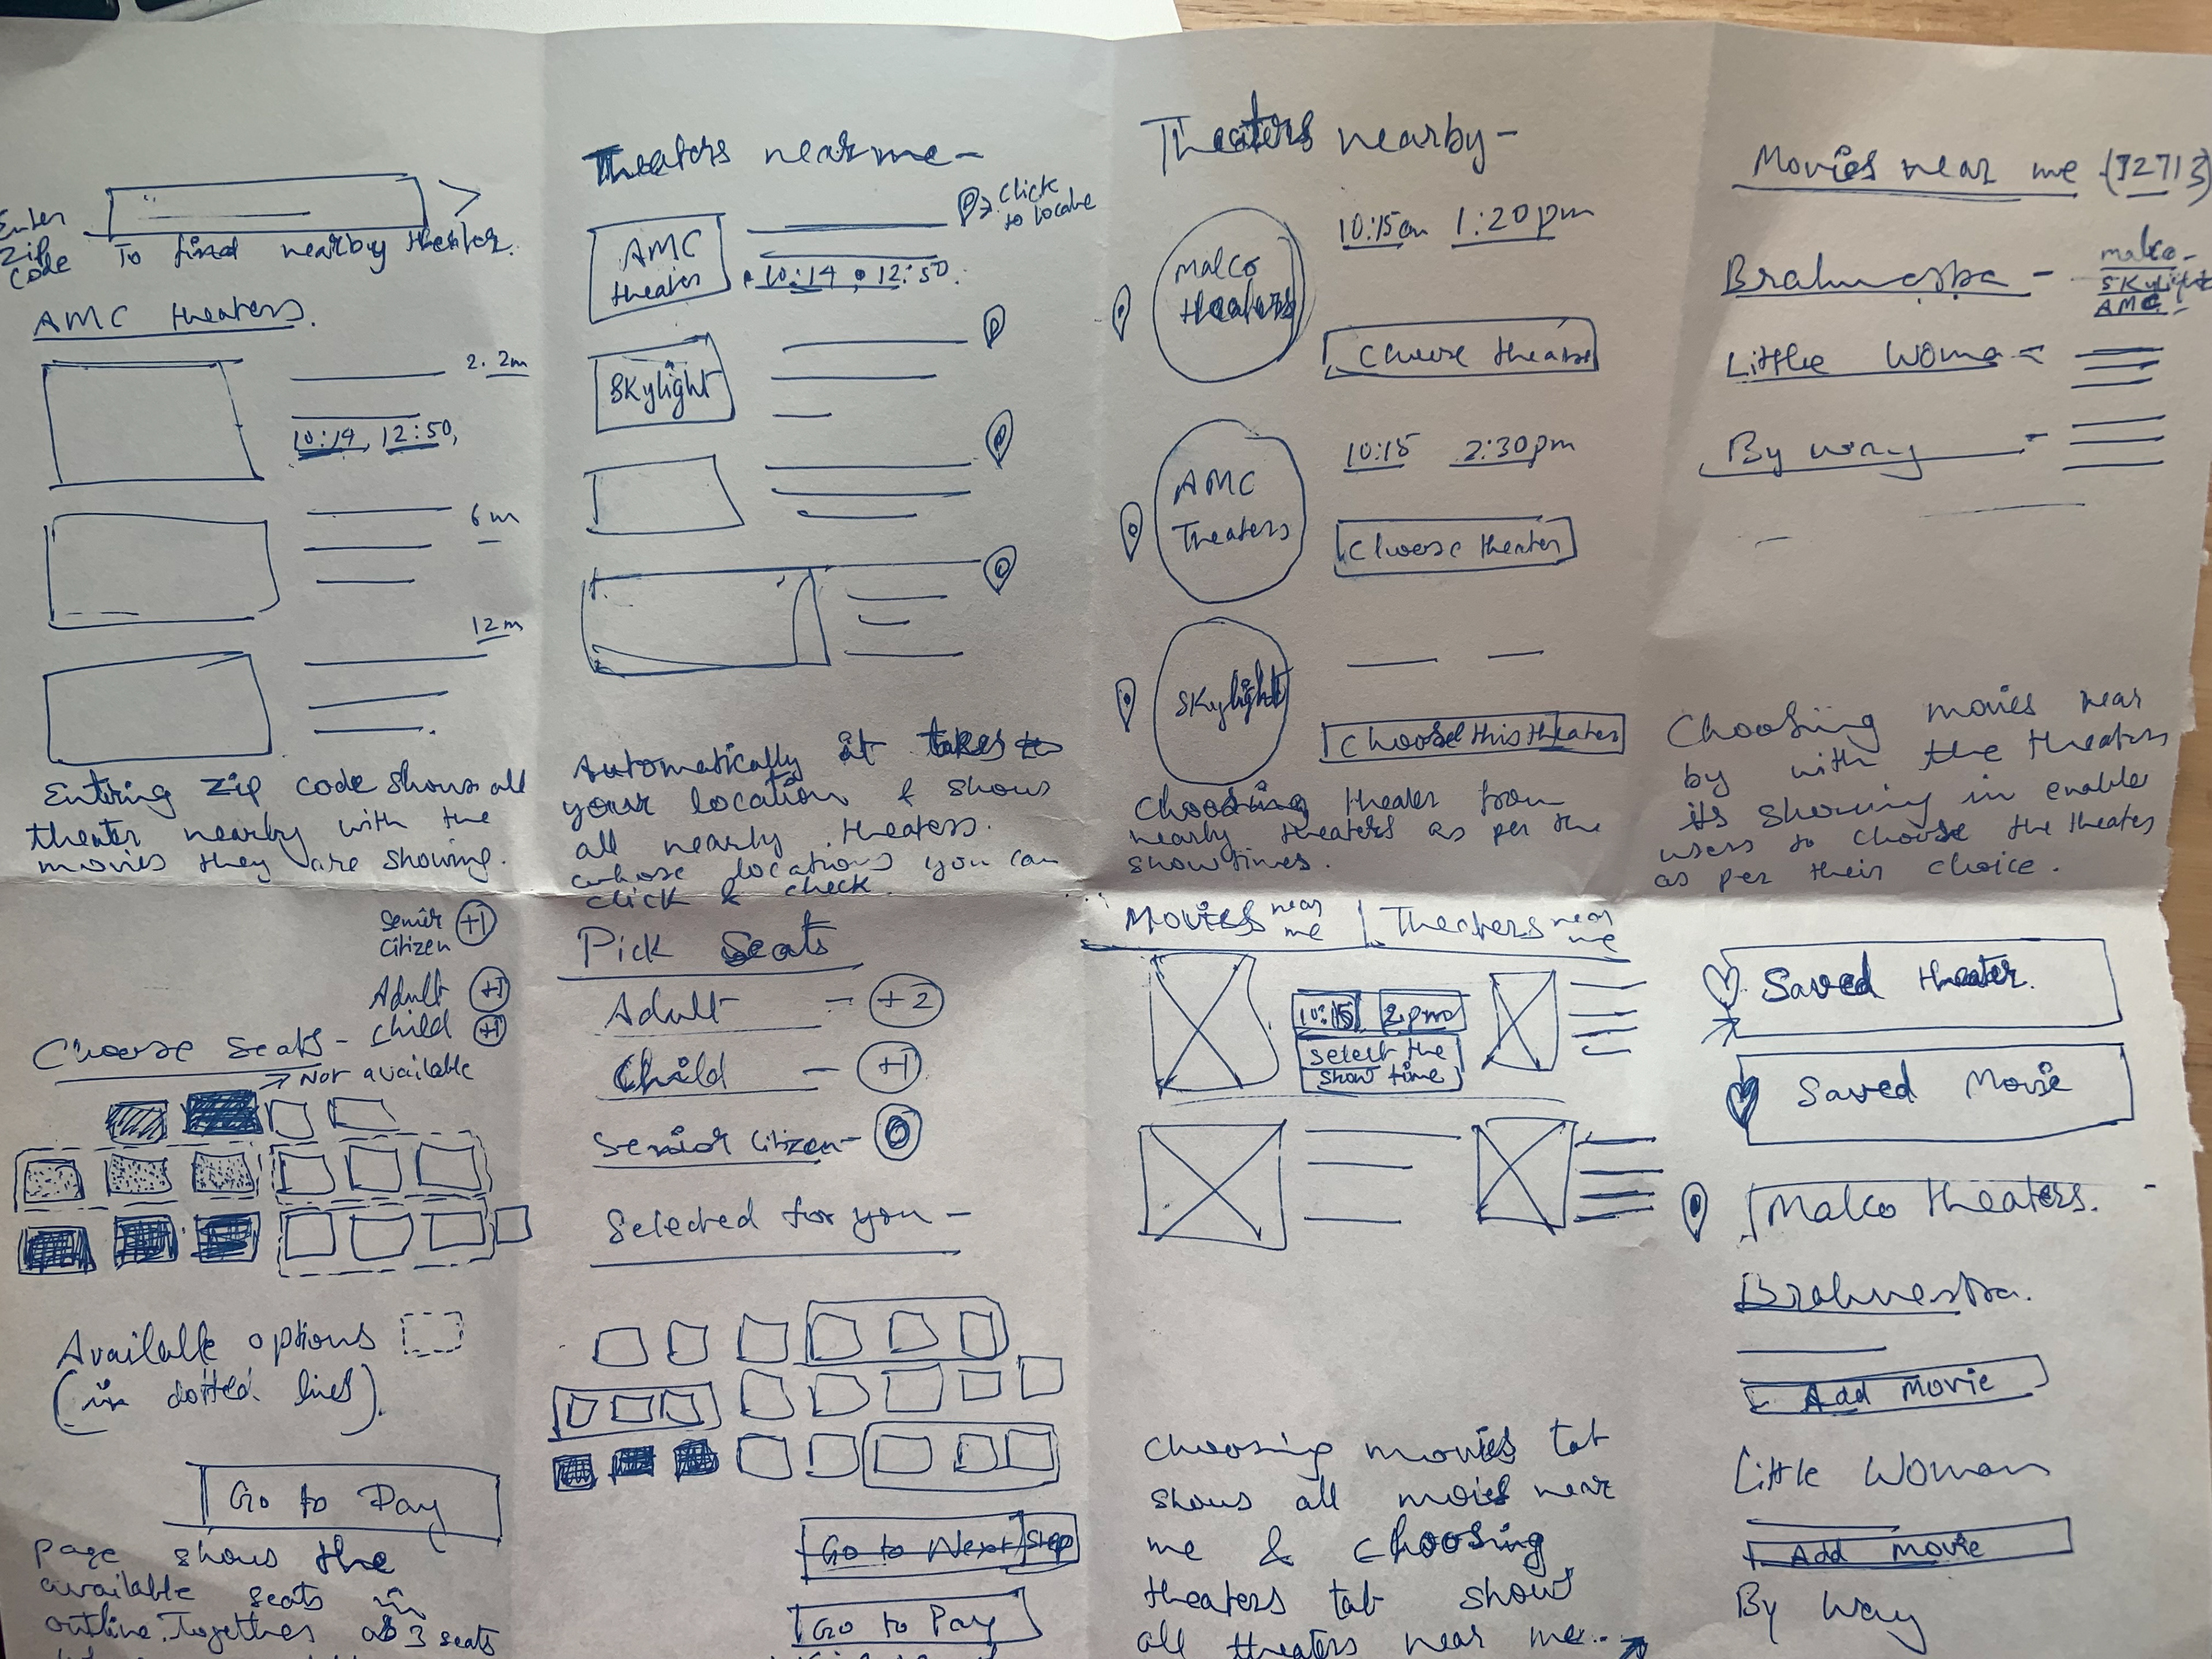 Enter
Zip
Code
To find nearby theater.
AMC theaters.
2.2m
10:14, 12:50,
6m
12m
Entering Zip code shows all
theater nearby with the
movies they are showing.
Theaters near me -
Click
to locate
AMC
theater
10:14 12:50.
Skylight
Automatically it takes to
your location & shows
all nearby theaters.
whose locations you can
click & check.
Theaters nearby -
Malco
theaters
10:15am 1:20pm
Choose theater
AMC
Theaters
10:15 2:30pm
Choose theater
Skylight
Choose this theater
Choosing theater from
nearby theaters as per the
showtimes.
Movies near me (92713)
malco -
Skylight
AMC -
Little Woma
By way
Choosing movies near
by with the theaters
its showing in enable
users to choose the theater
as per their choice.
Senior
Citizen +1
Adult +1
Child +1
Choose Seats -
Not available
Available options
(in dotted lines).
Go to Pay
Page shows the
available seats in
outline. Together as 3 seats
Pick Seats
Adult - +2
Child - +1
Senior Citizen - 0
Selected for you -
Go to Next Step
Go to Pay
Movies near me | Theaters near me
10:15 2pm
Select the
Show time
Choosing movies tab
shows all movies near
me & choosing
theaters tab show
all theaters near me..
Saved theater.
Saved Movie
Malco theaters.
Brahmestra.
Add Movie
Little Woman
+ Add Movie
By Way